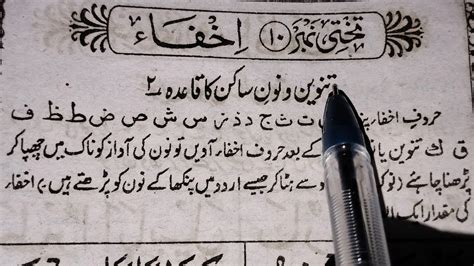 تختی نمبر ۱۰ اِخفَاء
تنوین و نون ساکن کا قاعدہ ۲
حروفِ اخفاء ت ث ج د ذ ز س ش ص ض ط ظ ف
ق ك تنوین یا کے بعد حروف اخفاء آویں تو نون کی آواز کو ناک میں چھپا کر
پڑھنا چاہئے (نو سے ہٹا کر جیسے اردو میں پنکھا کے نون کو پڑھتے ہیں) اخفاء
کی مقدار ایک ال